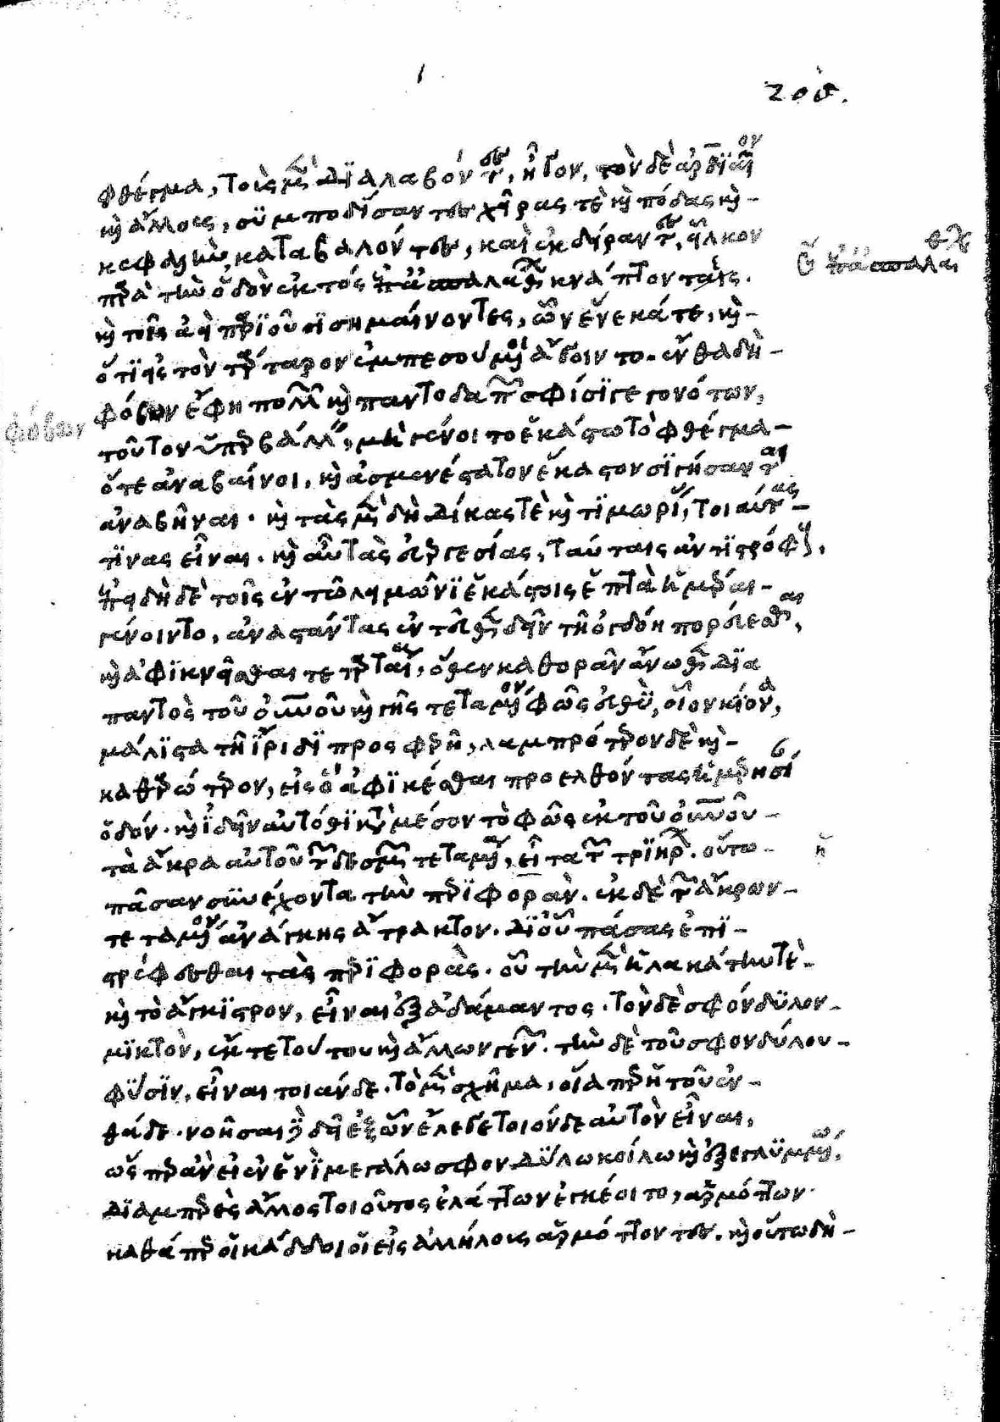 φθέγμα, τοὺς μὲν διαλαβόντες, ἦγον, τὸν δὲ ἀρδιαῖον
καὶ ἄλλους, συμποδίσαντες χεῖρας τὲ καὶ πόδας καὶ
κεφαλὴν, καταβαλόντες, καὶ ἐκδείραντες, εἷλκον
παρὰ τὴν ὁδὸν ἐκτὸς ἐπ' ἀσπαλάθων κνάπτοντες.
καὶ τοῖς ἀεὶ παριοῦσι σημαίνοντες, ὧν ἕνεκά τε, καὶ
ὅτι εἰς τὸν τάρταρον ἐμπεσούμενοι ἄγοιντο. ἔνθα δὴ
φόβων ἔφη πολλῶν καὶ παντοδαπῶν σφίσι γεγονότων,
τοῦτον ὑπερβάλλειν, μὴ γένοιτο ἑκάστω τὸ φθέγμα
ὅτε ἀναβαίνοι, καὶ ἀσμενέστατον ἕκαστον σιγήσαντα
ἀναβῆναι. καὶ τὰς μὲν δὴ δίκας τὲ καὶ τιμωρίας, τοιαύτας
τινας εἶναι. καὶ αὖ τὰς εὐεργεσίας, ταύταις ἀντιστρόφους,
ἐπειδὴ δὲ τοῖς ἐν τῶ λειμῶνι ἑκάστοις ἑπτὰ ἡμέραι
γένοιντο, ἀναστάντας ἐντεῦθεν δεῖν τῆ ὀγδόη πορεύεσθαι,
καὶ ἀφικνεῖσθαι τεταρταίους, ὅθεν καθορᾶν ἄνωθεν διὰ
παντὸς τοῦ οὐνοῦ καὶ γῆς τεταμένον φῶς εὐθὺ, οἷον κίονα,
μάλιστα τῆ ἴριδι προσφερῆ, λαμπρότερον δὲ καὶ
καθαρώτερον, εἰς ὃ ἀφικέσθαι προελθόντας ἡμερησίαν
ὁδόν. καὶ ἰδεῖν αὐτόθι κατὰ μέσον τὸ φῶς ἐκ τοῦ οὐνοῦ
τὰ ἄκρα αὐτοῦ τῶν δεσμῶν τεταμένα, εἶ τὰ τῶν τριήρων. οὕτω
πᾶσαν συνέχοντα τὴν περιφορὰν. ἐκ δὲ τῶν ἄκρων
τεταμένον ἀνάγκης ἄτρακτον. δι' οὗ πάσας ἐπι
στρέφεσθαι τὰς περιφορὰς. οὗ τὴν μὲν ἠλακάτην τὲ
καὶ τὸ ἄγκιστρον, εἶναι ἐξ ἀδάμαντος. τὸν δὲ σφόνδυλον
μικτὸν, ἔκ τε τούτου καὶ ἄλλων γενῶν. τὴν δὲ τοῦ σφονδύλου
φύσιν, εἶναι τοιάνδε. τὸ μὲν σχῆμα, οἵα περ ἡ τοῦ ἐν
θάδε. νοῆσαι δὲ δεῖ ἐξ ὧν ἔλεγε τοιόνδε αὐτὸν εἶναι,
ὥσπερ ἂν εἰ ἐν ἑνὶ μεγάλω σφονδύλω κοίλω καὶ ἐξεγλυμμένω
διαμπερὲς ἄλλος τοιοῦτος ἐλάττων ἐγκέοιτο, ἁρμόττων
καθάπερ οἱ κάδδοι οἱ εἰς ἀλλήλους ἁρμόττοντες. καὶ οὕτω δὴ
φόβων